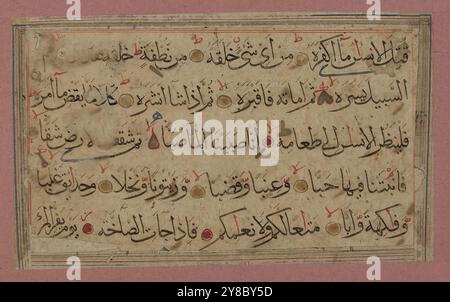 قتل الانسن ما اكفره من اى شئ خلقه من نطفة خلقه
السبيل يسره ثم اماته فاقبره ثم اذا شا انشره كلا لما يقض ما امره
فلينظر الانسن الى طعامه انا صببنا الما صبا ثم شققنا الارض شقا
فانبتنا فيها حبا وعنبا وقضبا وزيتونا ونخلا وحدايق غلبا
وفكهة وابا متعا لكم ولانعمكم فاذا جات الصاخه يوم يفر المر